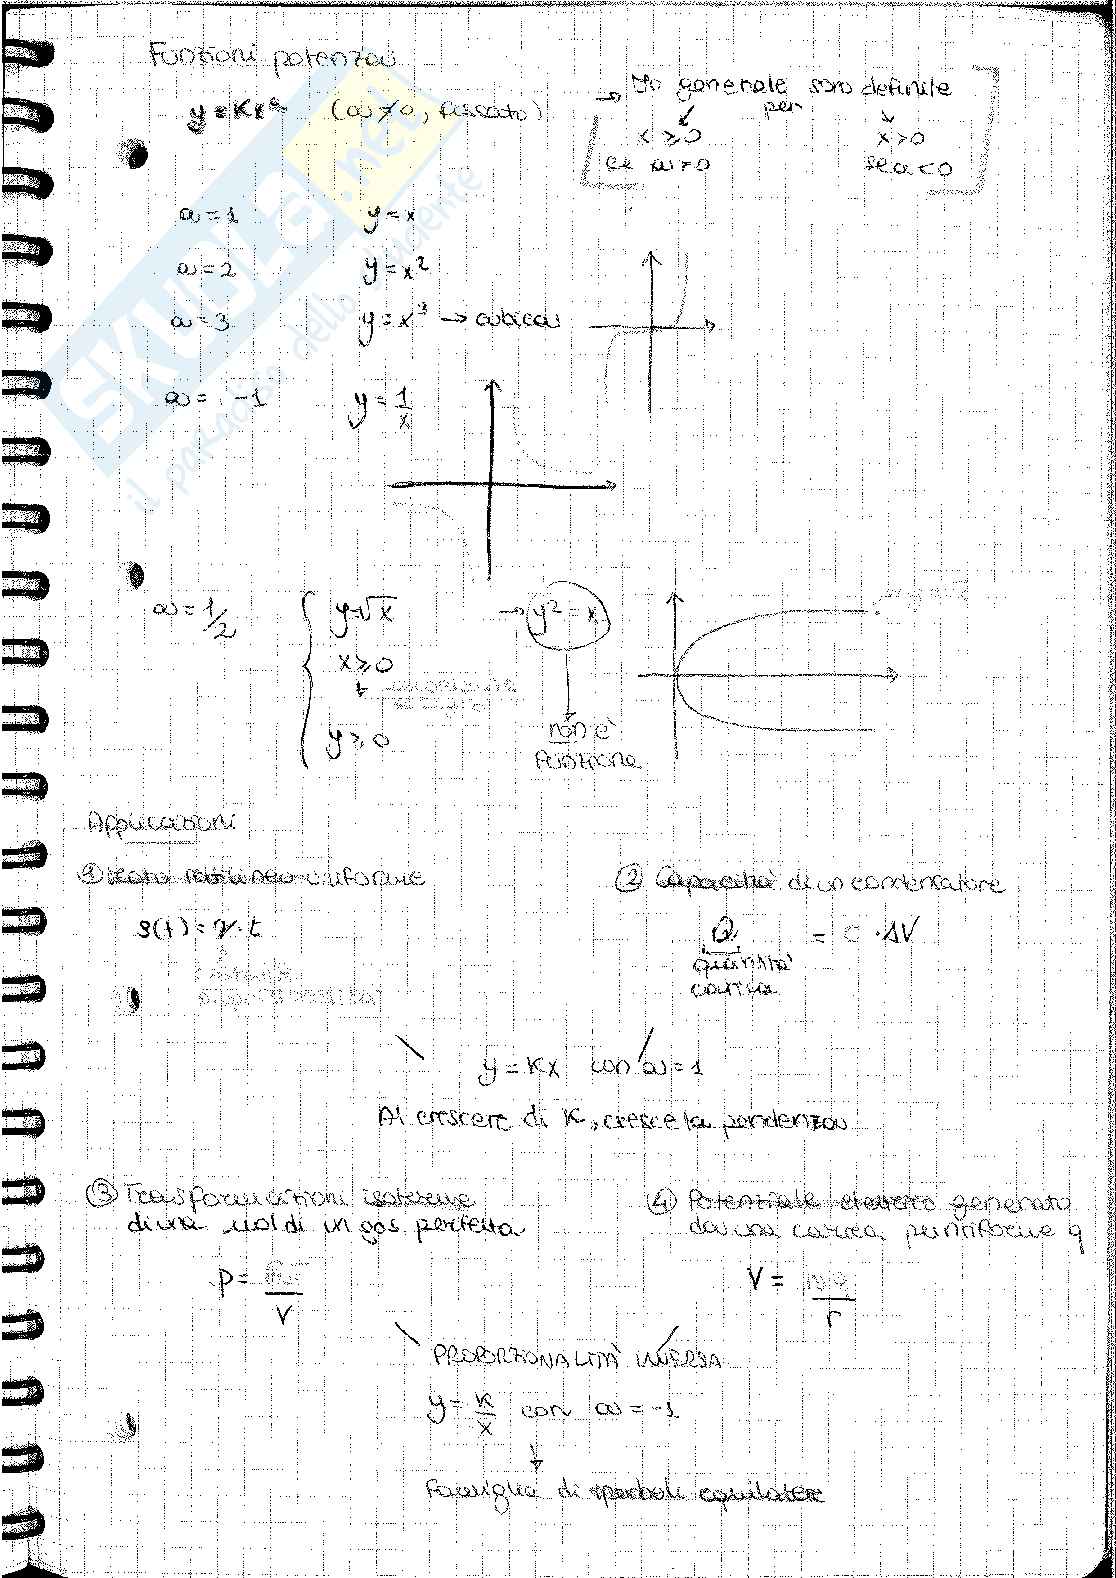 Funzioni potenza
y = Kx^a (a ≠ 0, fissato)
→ In generale sono definite
per
x ≥ 0 x > 0
se a > 0 se a < 0
a = 1 y = x
a = 2 y = x²
a = 3 y = x³ → cubica
a = -1 y = 1/x
a = 1/2 y = √x → y² = x
x ≥ 0
y ≥ 0
non è
funzione
Applicazioni
① moto rettilineo uniforme
s(t) = v · t
② Capacità di un condensatore
Q = C · ΔV
quantità
carica
y = Kx con a = 1
Al crescere di K, cresce la pendenza
③ Trasformazioni isoterme
di una mol di un gas perfetto
p = /V
④ Potenziale elettrico generato
da una carica puntiforme q
V = /r
PROPORZIONALITÀ INVERSA
y = K/x con a = -1
Famiglia di iperboli equilatere
SKUOLA.net
il paradiso dello studente